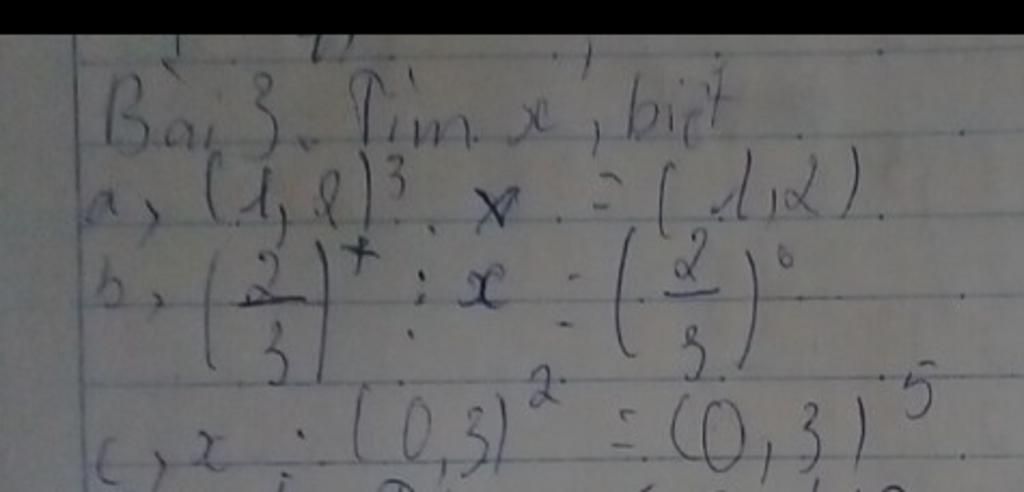 Bài 3. Tìm x, biết
a, (1,2)³ . x = (1,2)
b, (2/3)⁷ : x = (2/3)⁶
c, x : (0,3)² = (0,3)⁵